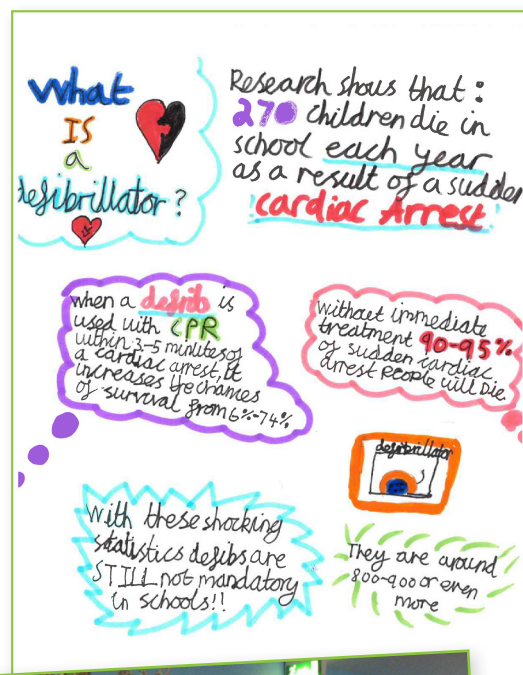 What
IS
a
defibrillator?
Research shows that:
270 children die in
school each year
as a result of a sudden
cardiac Arrest
when a defib is
used with CPR
within 3-5 minutes of
a cardiac arrest, it
increases the chances
of survival from 6%-74%
without immediate
treatment 90-95%
of sudden cardiac
arrest people will Die
defibrillator
With these shocking
statistics defibs are
STILL not mandatory
in schools!!
They are around
800-900 or even
more